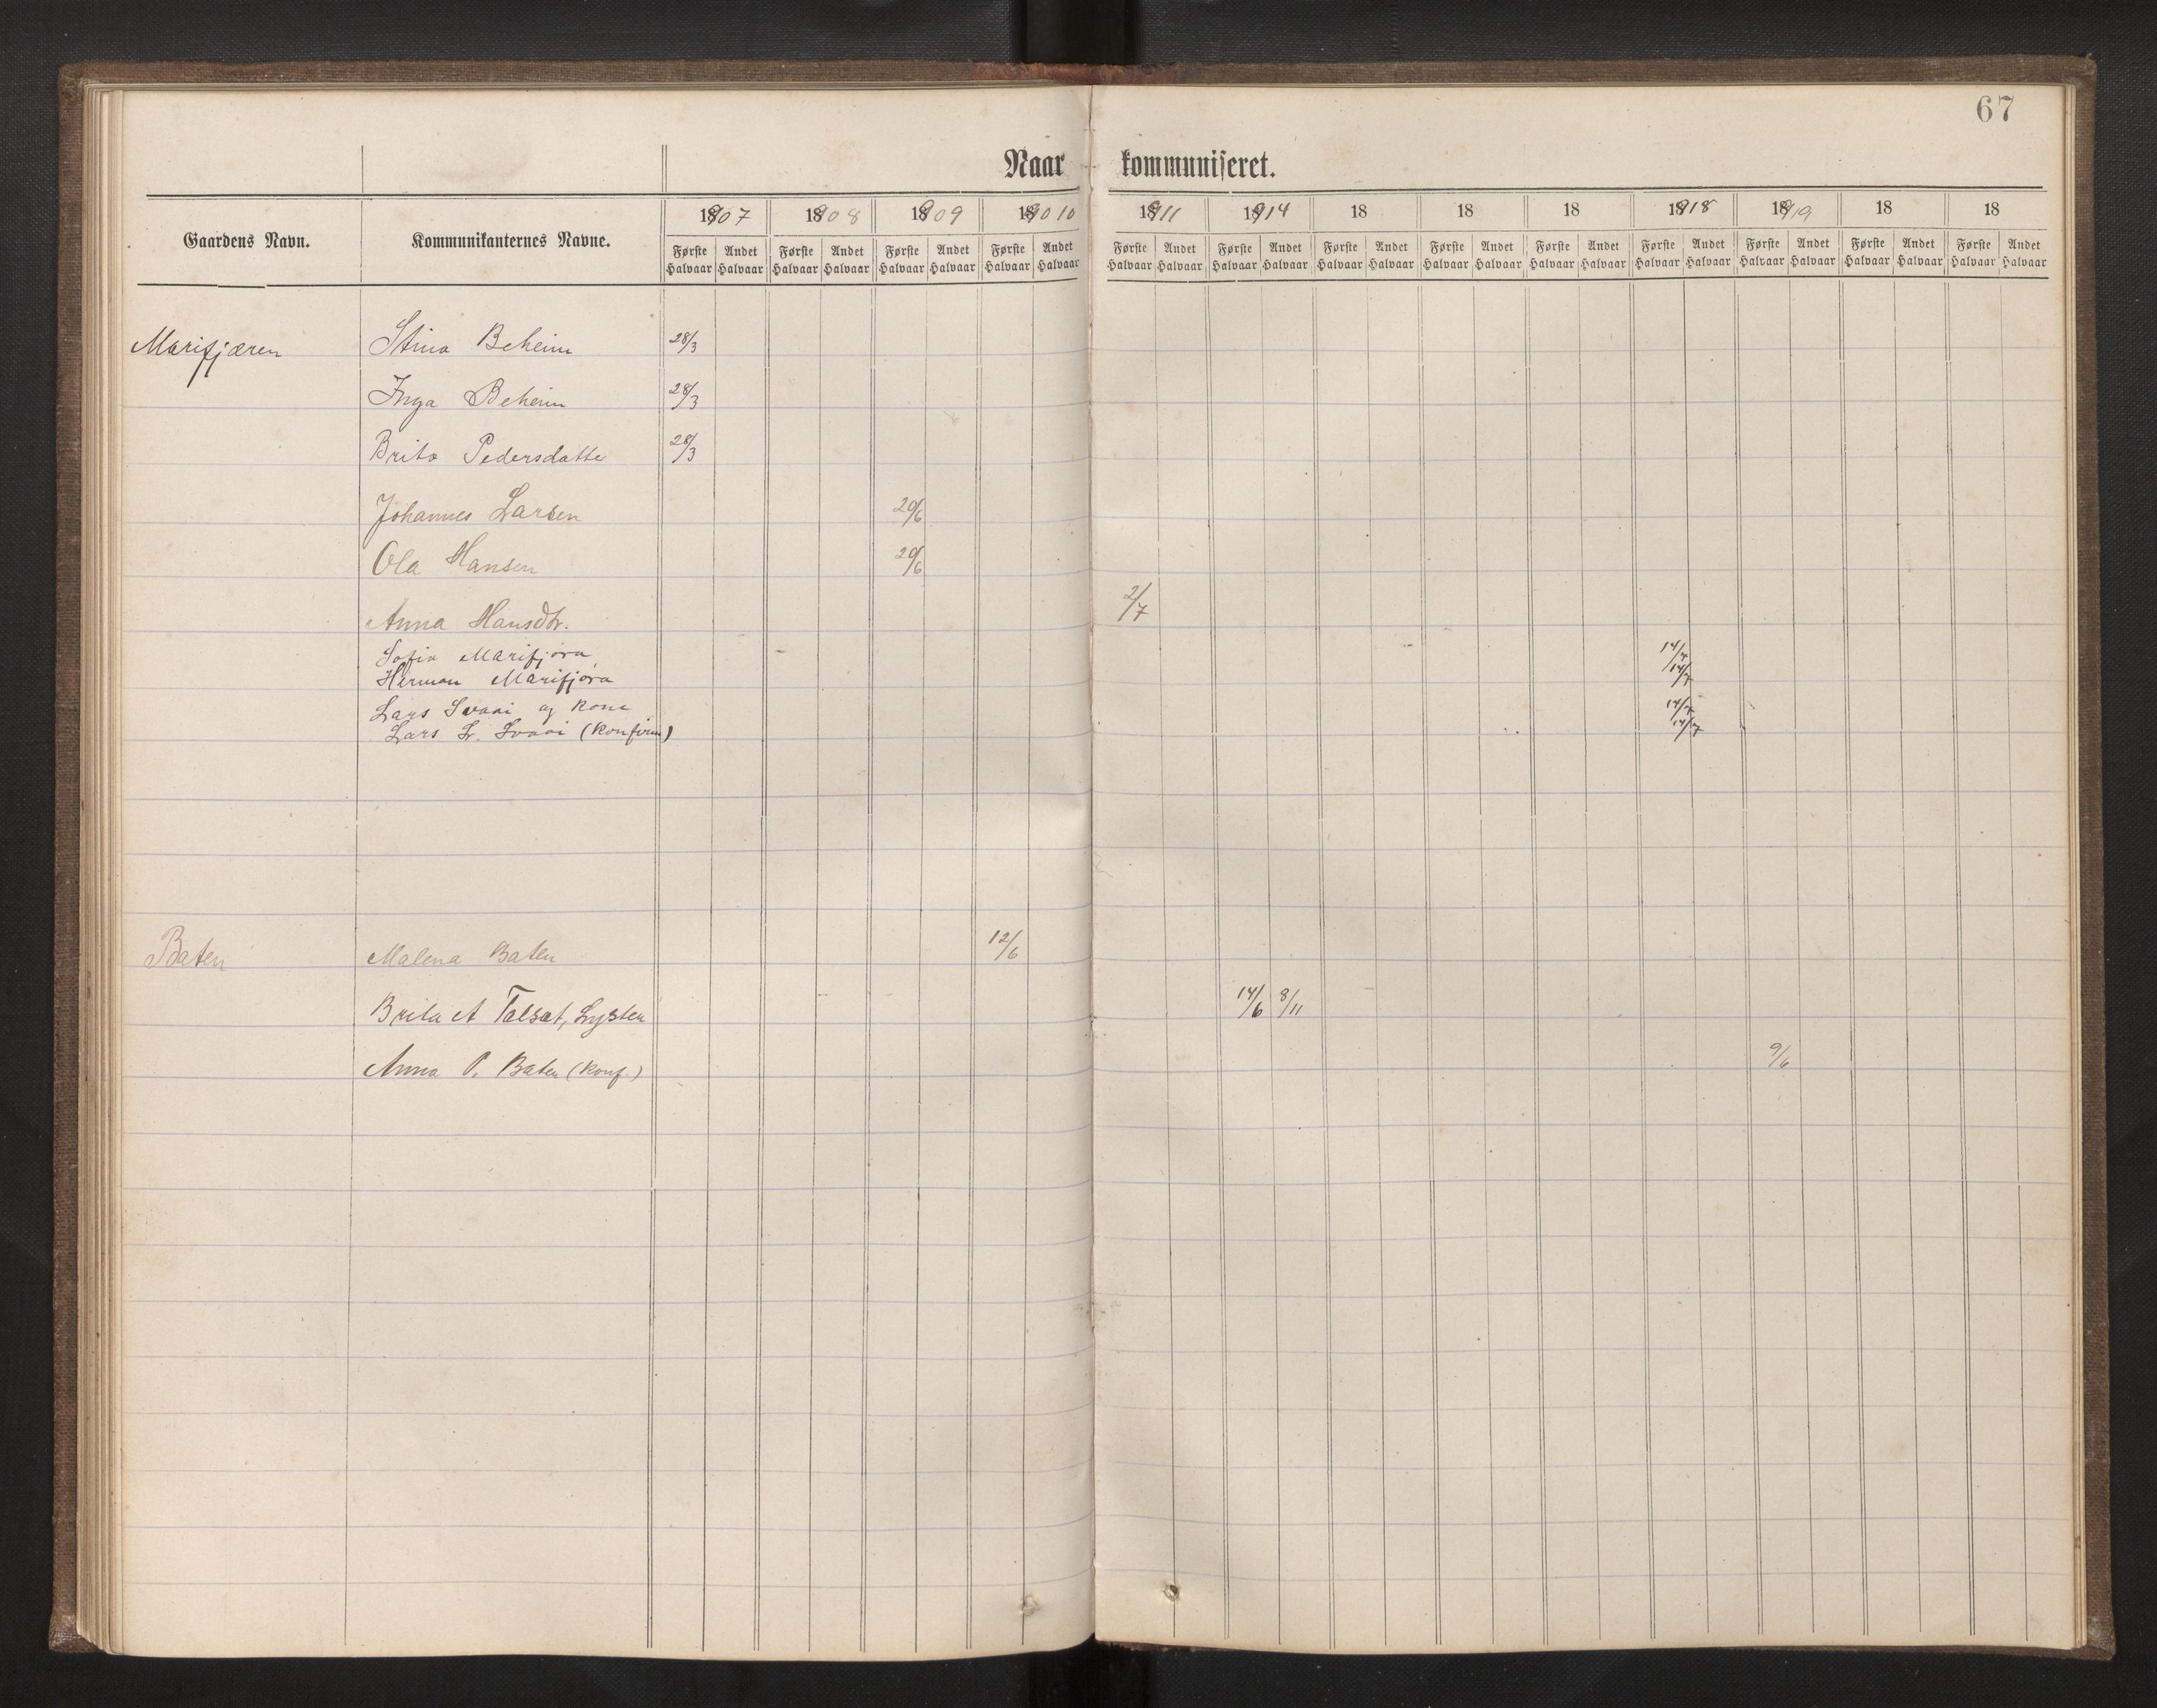 67
Naar kommuniseret.
Gaardens Navn. Kommunikanternes Navne. 1907 1908 1909 1910 1911 1914 18 18 18 1918 1919 18 18
Første Halvaar Andet Halvaar Første Halvaar Andet Halvaar Første Halvaar Andet Halvaar Første Halvaar Andet Halvaar Første Halvaar Andet Halvaar Første Halvaar Andet Halvaar Første Halvaar Andet Halvaar Første Halvaar Andet Halvaar Første Halvaar Andet Halvaar Første Halvaar Andet Halvaar Første Halvaar Andet Halvaar Første Halvaar Andet Halvaar Første Halvaar Andet Halvaar
Marifjæren Stina Beheim 28/3
Inga Beheim 28/3
Brita Pedersdatte 28/3
Johannes Larsen 20/6
Ola Hansen 20/6
Anna Hansdtr. 2/7
Sofia Marifjøra 14/7
Herman Marifjøra 14/7
Lars Svaai og Kone 14/7
Lars L. Svaai (Konfirm) 14/7
Baten Malena Baten 12/6
Brita A Talsat, Lyster 14/6 8/11
Anna P. Baten (Konf.) 9/6